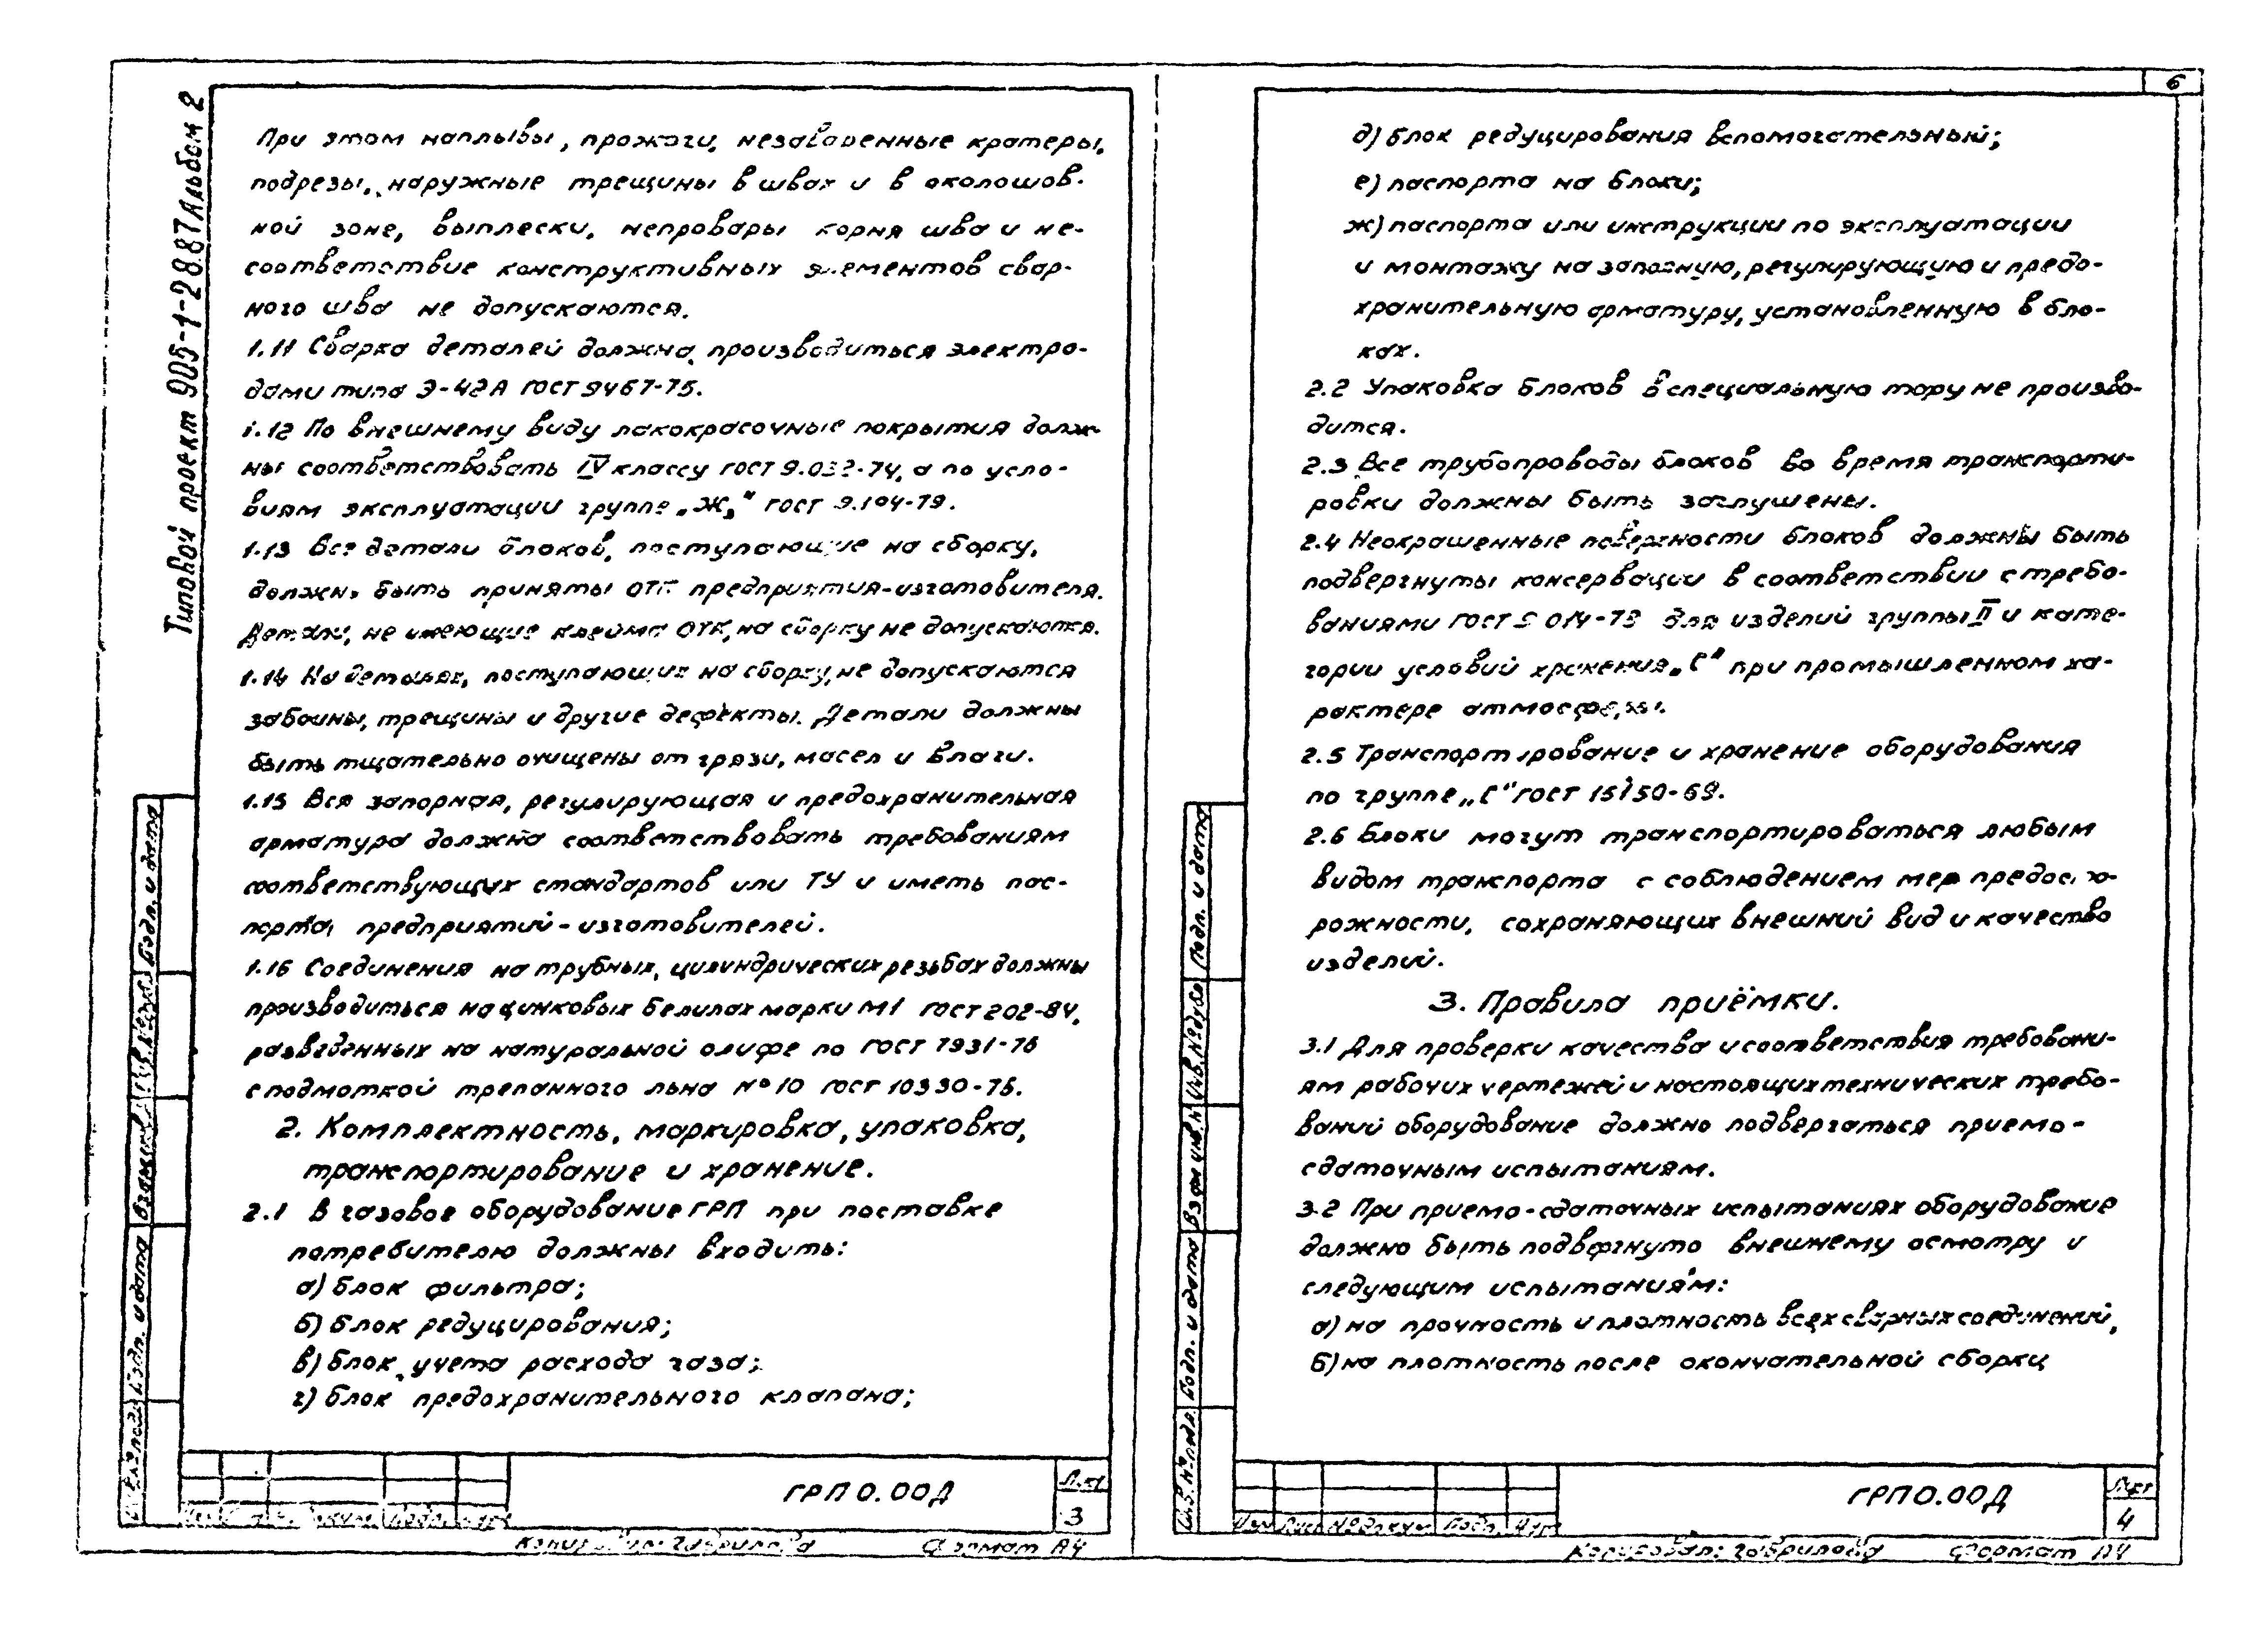 Типовой проект 905-1-28.87 Альбом 2
При этом наплывы, прожоги, незаваренные кратеры,
подрезы, наружные трещины в швах и в околошов-
ной зоне, выплески, непровары корня шва и не-
соответствие конструктивных элементов свар-
ного шва не допускаются.
1.11 Сварка деталей должна производиться электро-
дами типа Э-42А ГОСТ 9467-75.
1.12 По внешнему виду лакокрасочные покрытия долж-
ны соответствовать IV классу ГОСТ 9.032-74, а по усло-
виям эксплуатации группе „Ж2" ГОСТ 9.104-79.
1.13 Все детали блоков, поступающие на сборку,
должны быть приняты ОТК предприятия-изготовителя.
Детали, не имеющие клейма ОТК, на сборку не допускаются.
1.14 На деталях, поступающих на сборку, не допускаются
забоины, трещины и другие дефекты. Детали должны
быть тщательно очищены от грязи, масел и влаги.
1.15 Вся запорная, регулирующая и предохранительная
арматура должна соответствовать требованиям
соответствующих стандартов или ТУ и иметь пас-
порта предприятий-изготовителей.
1.16 Соединения на трубных, цилиндрических резьбах должны
производиться на цинковых белилах марки М1 ГОСТ 202-84,
разведенных на натуральной олифе по ГОСТ 7931-76
с подмоткой трепанного льна №10 ГОСТ 10330-76.
2. Комплектность, маркировка, упаковка,
транспортирование и хранение.
2.1 В газовое оборудование ГРП при поставке
потребителю должны входить:
а) блок фильтра;
б) блок редуцирования;
в) блок учета расхода газа;
г) блок предохранительного клапана;
ГРП 0.00Д
Лист
3
Копировал: Гаврилова Формат А4
6
д) блок редуцирования вспомогательный;
е) паспорта на блоки;
ж) паспорта или инструкции по эксплуатации
и монтажу на запорную, регулирующую и предо-
хранительную арматуру, установленную в бло-
ках.
2.2 Упаковка блоков в специальную тару не произво-
дится.
2.3 Все трубопроводы блоков во время транспорти-
ровки должны быть заглушены.
2.4 Неокрашенные поверхности блоков должны быть
подвергнуты консервации в соответствии с требо-
ваниями ГОСТ 9.014-78 для изделий группы II и кате-
гории условий хранения „С" при промышленном ха-
рактере атмосферы.
2.5 Транспортирование и хранение оборудования
по группе „С" ГОСТ 15150-69.
2.6 Блоки могут транспортироваться любым
видом транспорта с соблюдением мер предосто-
рожности, сохраняющих внешний вид и качество
изделий.
3. Правила приёмки.
3.1 Для проверки качества и соответствия требовани-
ям рабочих чертежей и настоящих технических требо-
ваний оборудование должно подвергаться приемо-
сдаточным испытаниям.
3.2 При приемо-сдаточных испытаниях оборудование
должно быть подвергнуто внешнему осмотру и
следующим испытаниям:
а) на прочность и плотность всех сварных соединений,
б) на плотность после окончательной сборки
Инв.№подл. Подп. и дата Взам инв.№ Инв.№дубл Подп. и дата
Изм Лист №докум Подп. Дата
ГРП 0.00Д
Лист
4
Копировал: Гаврилова Формат А4